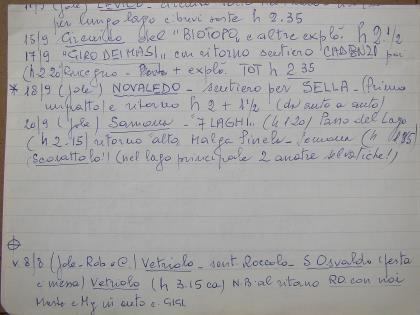 per lungo lago e brevi soste h 2.35
15/9 Circuito del "BIOTOPO" e altre explò. h 2 1/2
17/9 "GIRO DEI MASI" con ritorno sentiero CADENZI per
(h 2.20 Roncegno - + explò. TOT h 2 35
* 18/9 (Jole) NOVALEDO - sentiero per SELLA - (Primo
impatto) e ritorno h 2 + 1 1/2 (da auto a auto)
20/9 (Jole) Samone - "7 LAGHI" (h 1 20) Passo del Lago
(h 2.15) ritorno alta Malga Primela - Samone (h 1 35)
(nel lago principale 2 anatre selvatiche!)
v. 8/8 (Jole - Rob e C.) Vetriolo - sent. Roccolo - S. Osvaldo (festa
e messa) Vetriolo (h 3.15 ca) N.B. al ritorno RO. con noi
e My in auto c. GIGI